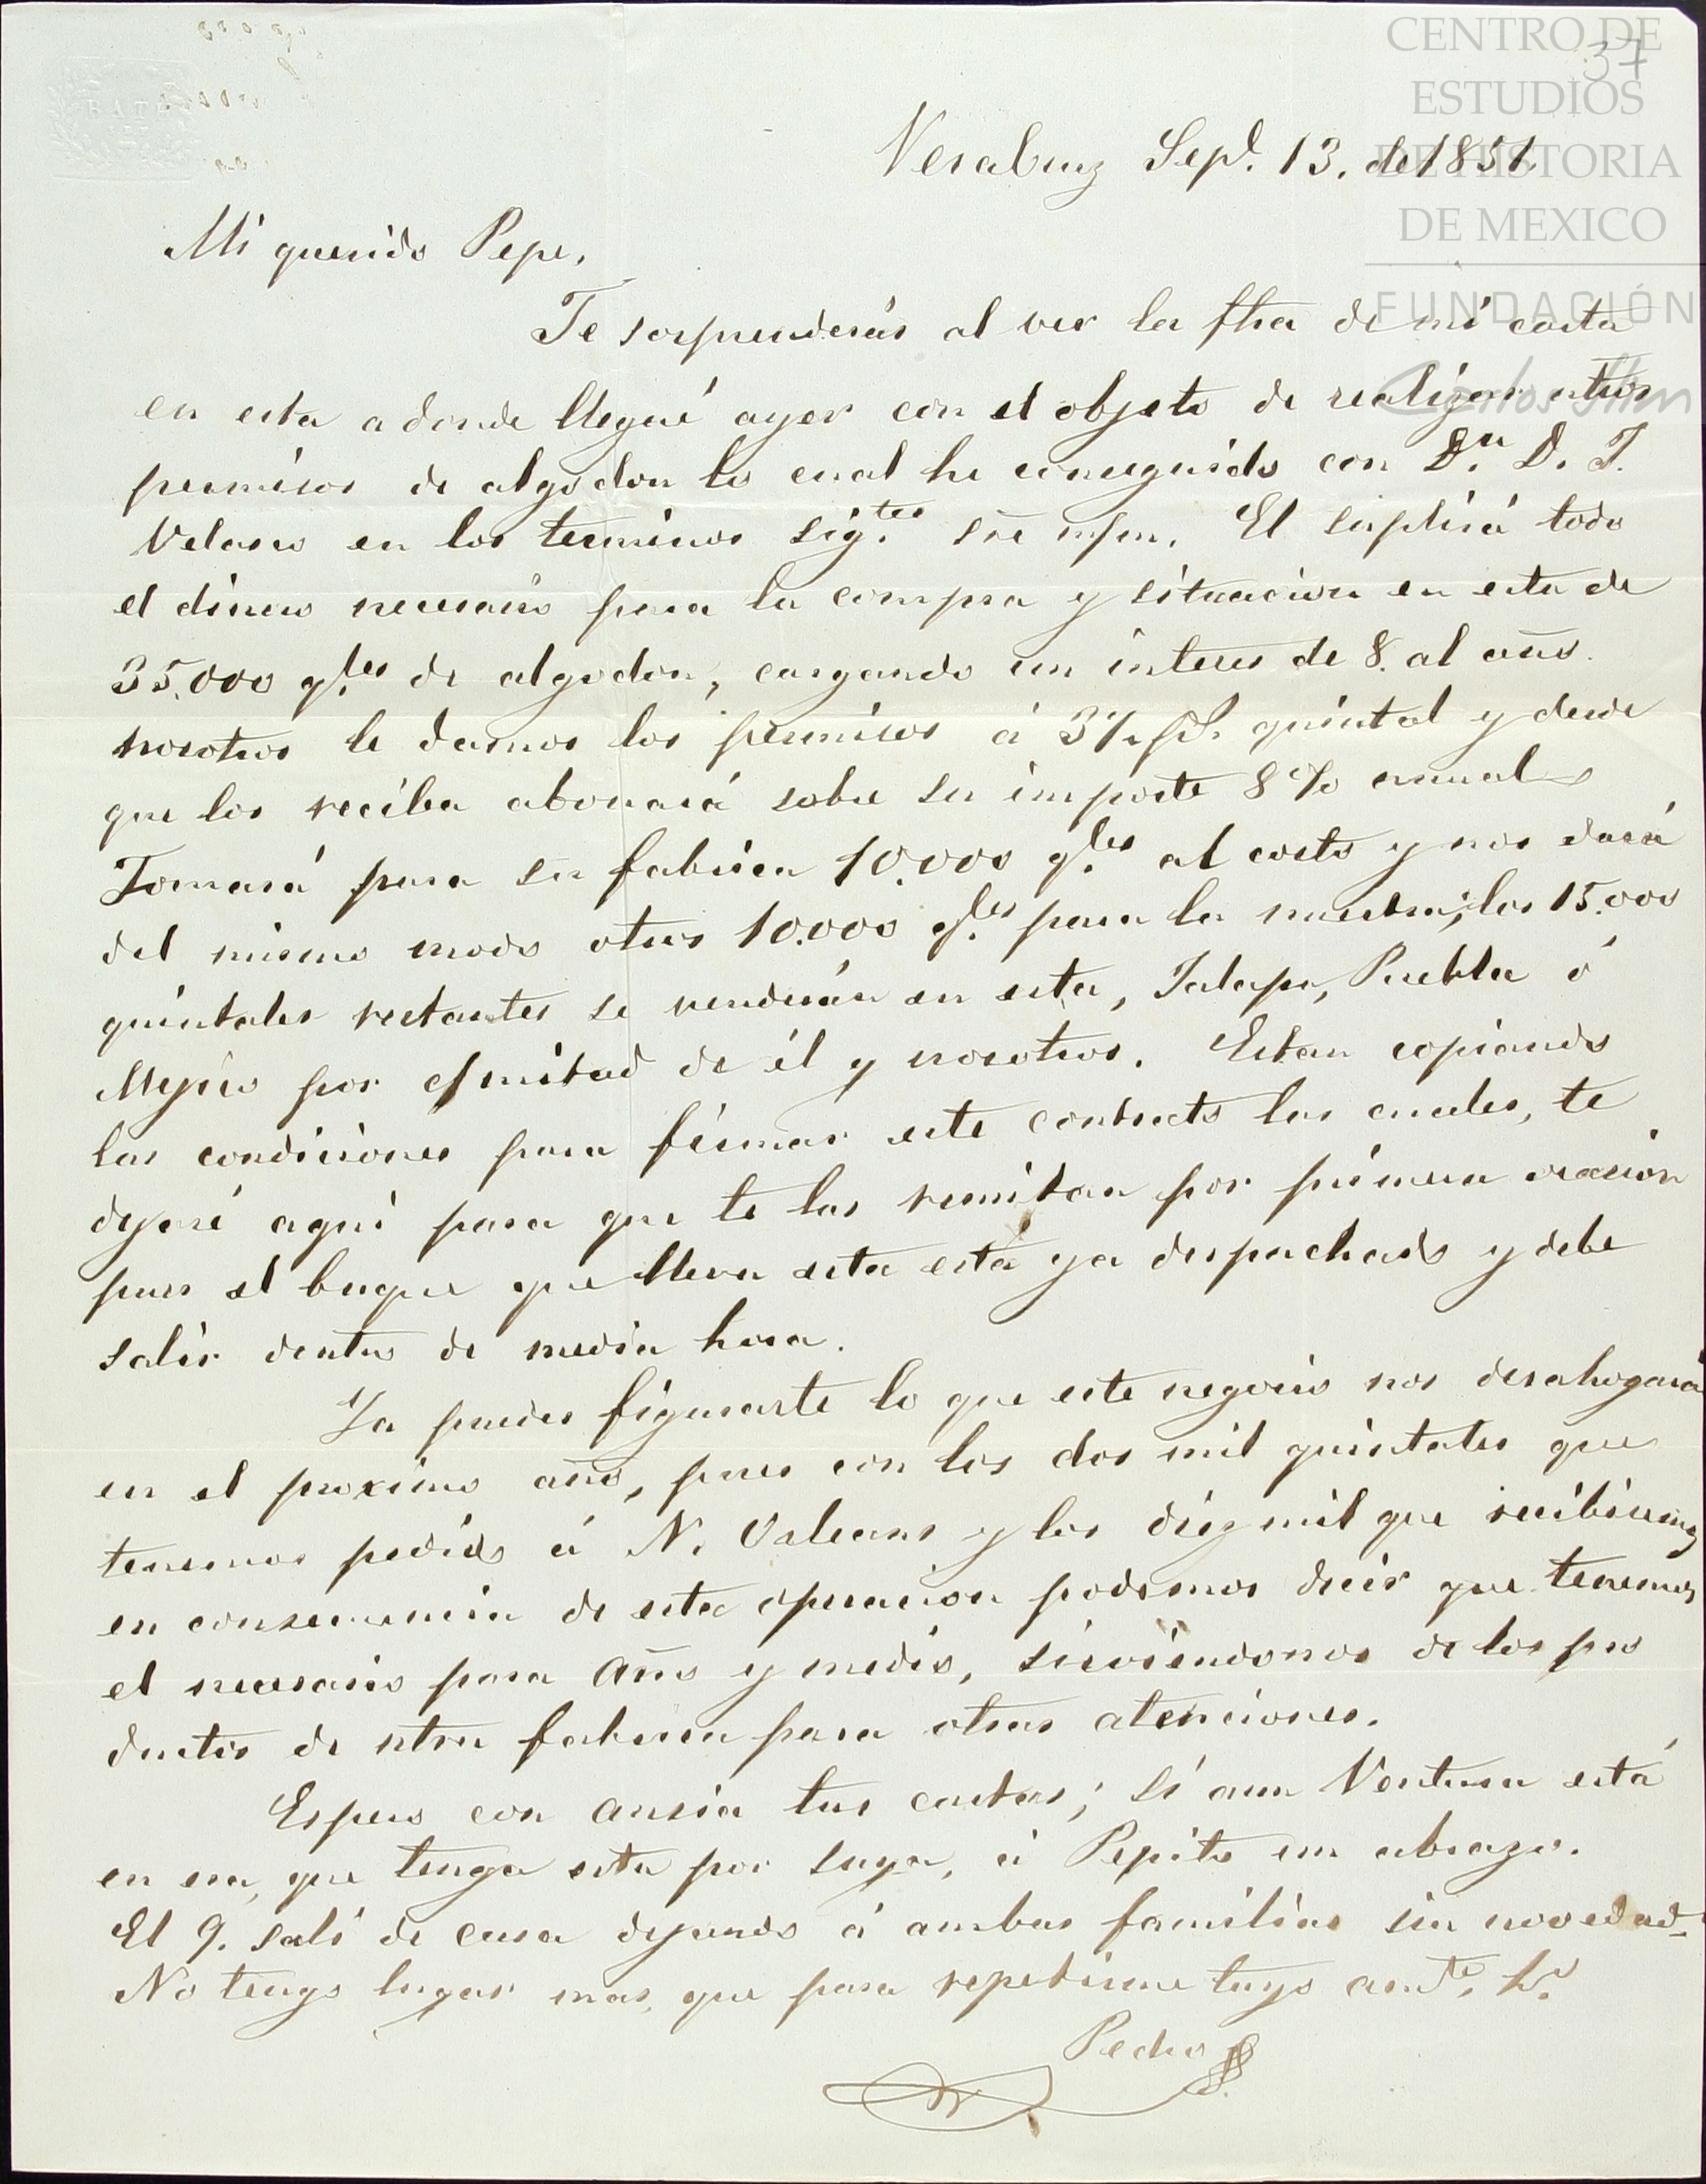 37
CENTRO DE
ESTUDIOS
DE HISTORIA
DE MEXICO
FUNDACIÓN
Carlos Slim
Veracruz Sepe. 13. de 1851.
Mi querido Pepe,
Te sorprenderás al ver la fha de mi carta
en esta a donde llegué ayer con el objeto de realizar ntros
permisos de algodon lo cual he conseguido con Dn. D. J.
Velasco en los terminos sigtes. El suplirá todo
el dinero necesario para la compra y situacion en esta de
35.000 qles de algodon, cargando un interes de 8. al año.
nosotros le damos los permisos á quintal y desde
que los reciba abonará sobre su importe 8 % anual
Tomará para su fabrica 10.000 qles al costo y nos dará
del mismo modo otros 10.000 qles para la nuestra; los 15.000
quintales restantes se venderán en esta, Jalapa, Puebla ó
Mejico por mitad de él y nosotros. Estan copiando
las condiciones para firmar este contrato las cuales, te
dejaré aqui para que te las remitan por primera ocasion
pues el buque que lleva esta está ya despachado y debe
salir dentro de media hora.
Ya puedes figurarte lo que este negocio nos desahogará
en el proximo año, pues con los dos mil quintales que
tenemos pedido á N. Orleans y los diez mil que recibiremos
en consecuencia de esta operacion podemos decir que tenemos
el necesario para año y medio, sirviendonos de los pro
ductos de ntra fabrica para otras atenciones.
Espero con ansia tus cartas; si aun Ventura está
en esa, que tenga esta por suya, á Pepito un abrazo.
El 9. salí de casa dejando á ambas familias sin novedad.
No tengo lugar mas que para repetirme tuyo amte. ho.
Pedro